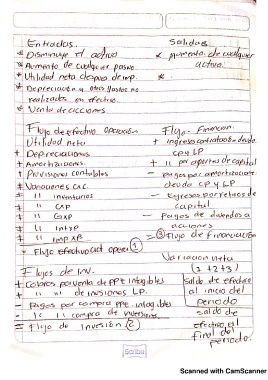 Entradas.
* Disminuye el activo
* Aumento de cualquier pasivo
* Utilidad neta despues de imp.
* Depreciación y otros gastos no
realizados en efectivo.
* Venta de acciones.
Salidas
* aumento de cualquier
activo.
*
Flujo de efectivo operación
Utilidad neta
+ Depreciaciones
+ Amortizaciones.
+ Provisiones contables
* Variaciones C x C.
" inventarios
" C x P
" G x P
" Int x P
" Imp x P
= Flujo efectivo act opera ①
Flujo - Financian.
+ ingreso contratación deuda
CP y LP
+ " por aportes de capital
- Pagos por amortización de
deuda CP y LP
- Egresos por retiros de
capital
- Pagos de dividendos a
acciones
= ③ Flujo de Financiación
Flujos de inv.
+ Cobros por venta de PPE intagibles
+ " " de inversiones LP.
- Pagos por compra PPE intagibles
- " " compra de inversiones.
= Flujo de Inversión ②
Variación neta
(1 + 2 + 3)
Saldo de efectivo
al inicio del
periodo
saldo de
efectivo al
final del
periodo.
Scribe
Scanned with CamScanner